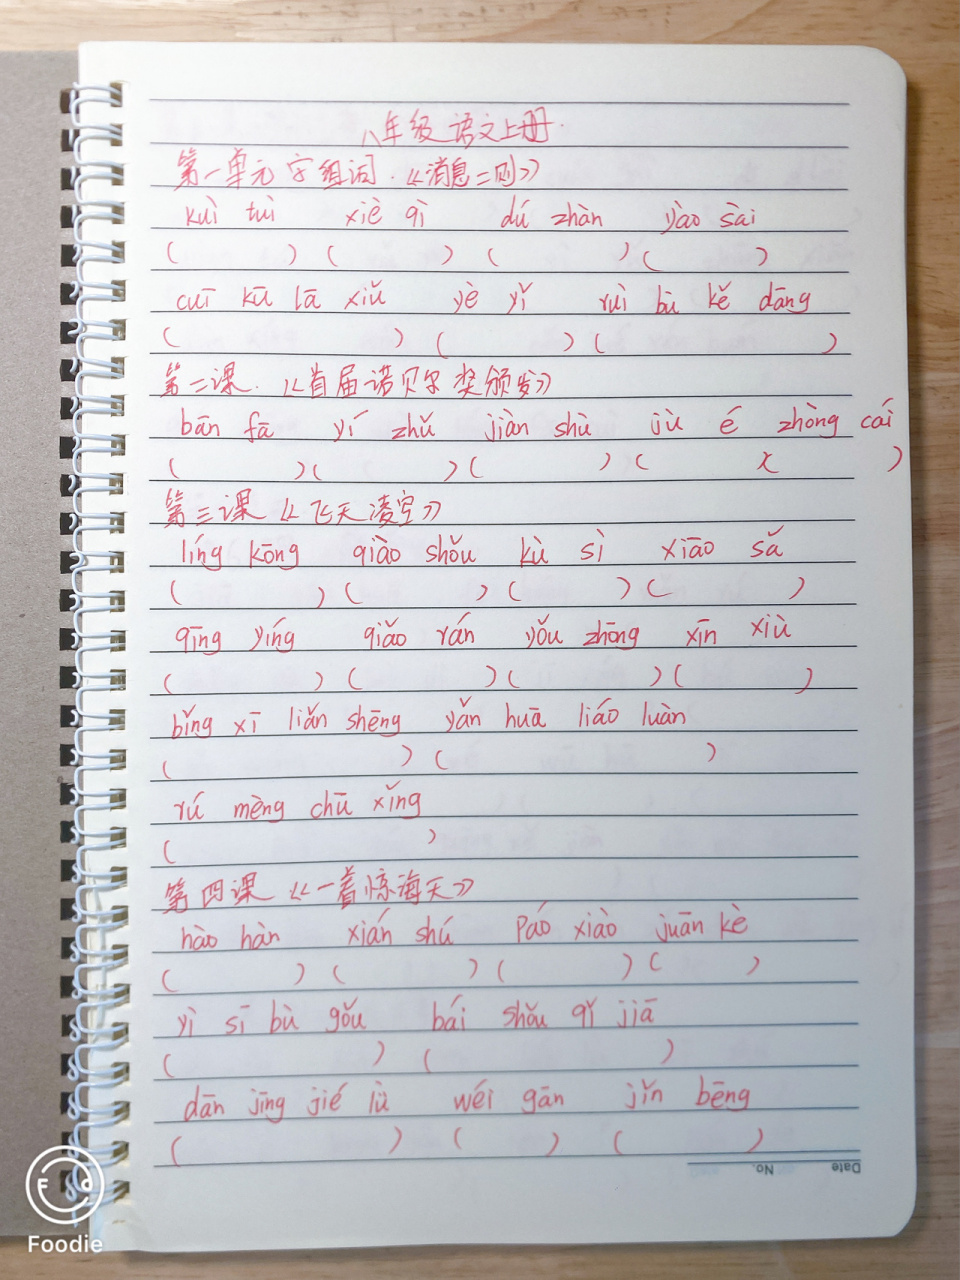 八年级语文上册.
第一单元字组词.《消息二则》
kuì tuì xiè qì dú zhàn yào sài
( ) ( ) ( ) ( )
cuī kū lā xiǔ yè yǐ ruì bù kě dāng
( ) ( ) ( )
第二课.《首届诺贝尔奖颁发》
bān fā yí zhǔ jiàn shù jù é zhòng cái
( ) ( ) ( ) ( )( )
第三课《飞天凌空》
líng kōng qiào shǒu kù sì xiāo sǎ
( ) ( ) ( ) ( )
qīng yíng qiǎo rán yǒu zhōng xīn xiù
( ) ( ) ( ) ( )
bǐng xī liǎn shēng yǎn huā liáo luàn
( ) ( )
rú mèng chū xǐng
( )
第四课《一着惊海天》
hào hàn xián shú Páo xiào juān kè
( ) ( ) ( ) ( )
yì sī bù gǒu bái shǒu qǐ jiā
( ) ( )
dān jīng jié lǜ wéi gān jǐn bēng
( ) ( ) ( )
Date No.
Foodie